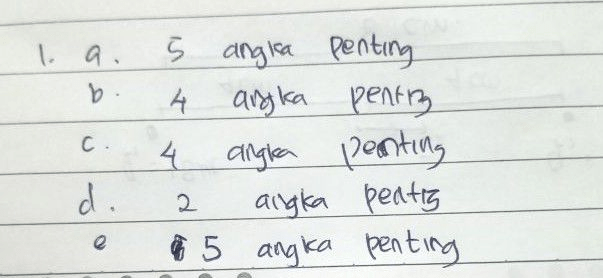 1. a. 5 angka penting
b. 4 angka penting
c. 4 angka penting
d. 2 angka penting
e 5 angka penting